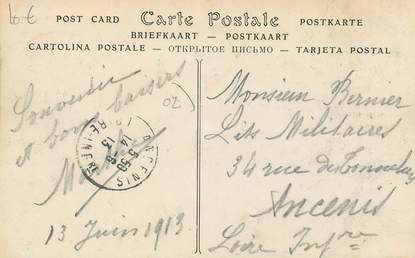 6€
POST CARD Carte Postale POSTKARTE
BRIEFKAART — POSTKAART
CARTOLINA POSTALE — ОТКРЫТОЕ ПИСЬМО — TARJETA POSTAL
Souvenir
et bons baisers
Maurice
13 Juin 1913
02
ANCENIS
5 50
14 - 6
13
RE-INFRE
Monsieur Bernier
Lits Militaires
34 rue de
Ancenis
Loire Infre